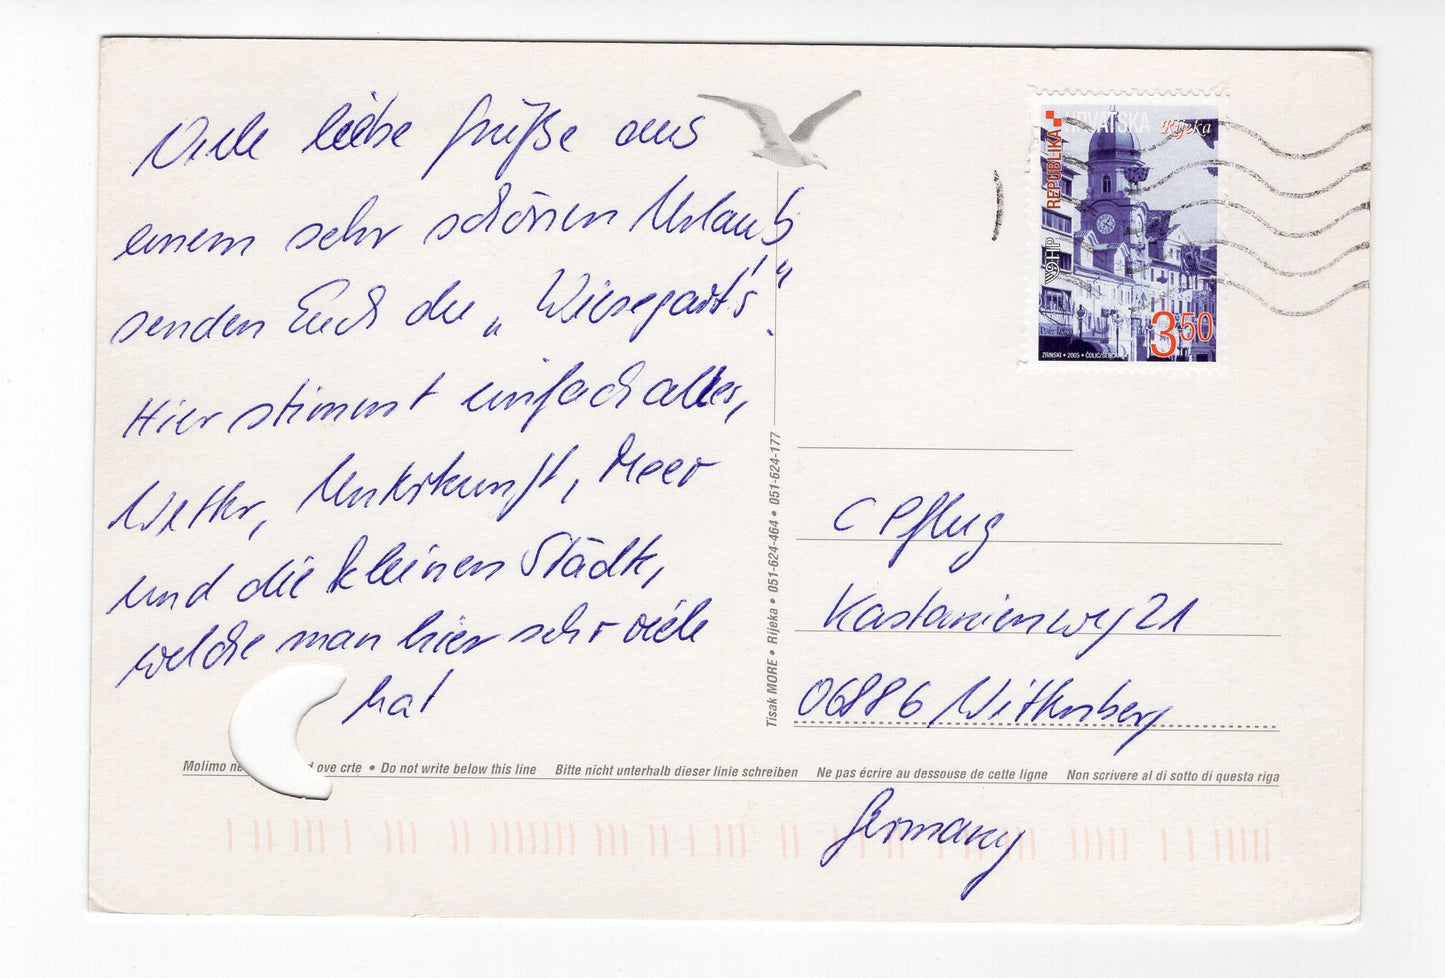 Viele liebe Grüße aus
einem sehr schönen Urlaub
senden Euch die „Wiesegart's“.
Hier stimmt einfach alles,
Wetter, Unterkunft, Meer
und die kleinen Städte,
welche man hier sehr viele
hat
REPUBLIKA HRVATSKA
Rijeka
HP
3,50
ZRINSKI • 2005 • ČOLIĆ/SERČAR
Tisak MORE • Rijeka • 051-624-464 • 051-624-177
C Pflug
Kastanienweg 21
06886 Wittenberg
Molimo ne ove crte • Do not write below this line Bitte nicht unterhalb dieser linie schreiben Ne pas écrire au dessouse de cette ligne Non scrivere al di sotto di questa riga
Germany